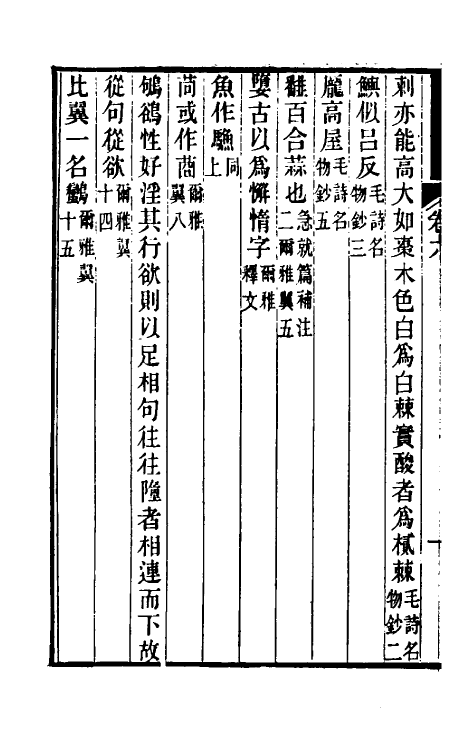 卷六
刺亦能高大如棗木色白爲白棘實酸者爲樲棘毛詩名物鈔二
鱮似呂反毛詩名物鈔三
龎高屋毛詩名物鈔五
雝百合蒜也急就篇補注二爾雅翼五
嬾古以爲懈惰字爾雅釋文
魚作䲑同上
茼或作蔏爾雅翼八
鴝鵒性好淫其行欲則以足相句往往墮者相連而下故
從句從欲爾雅翼十四
比翼一名鶼爾雅翼十五